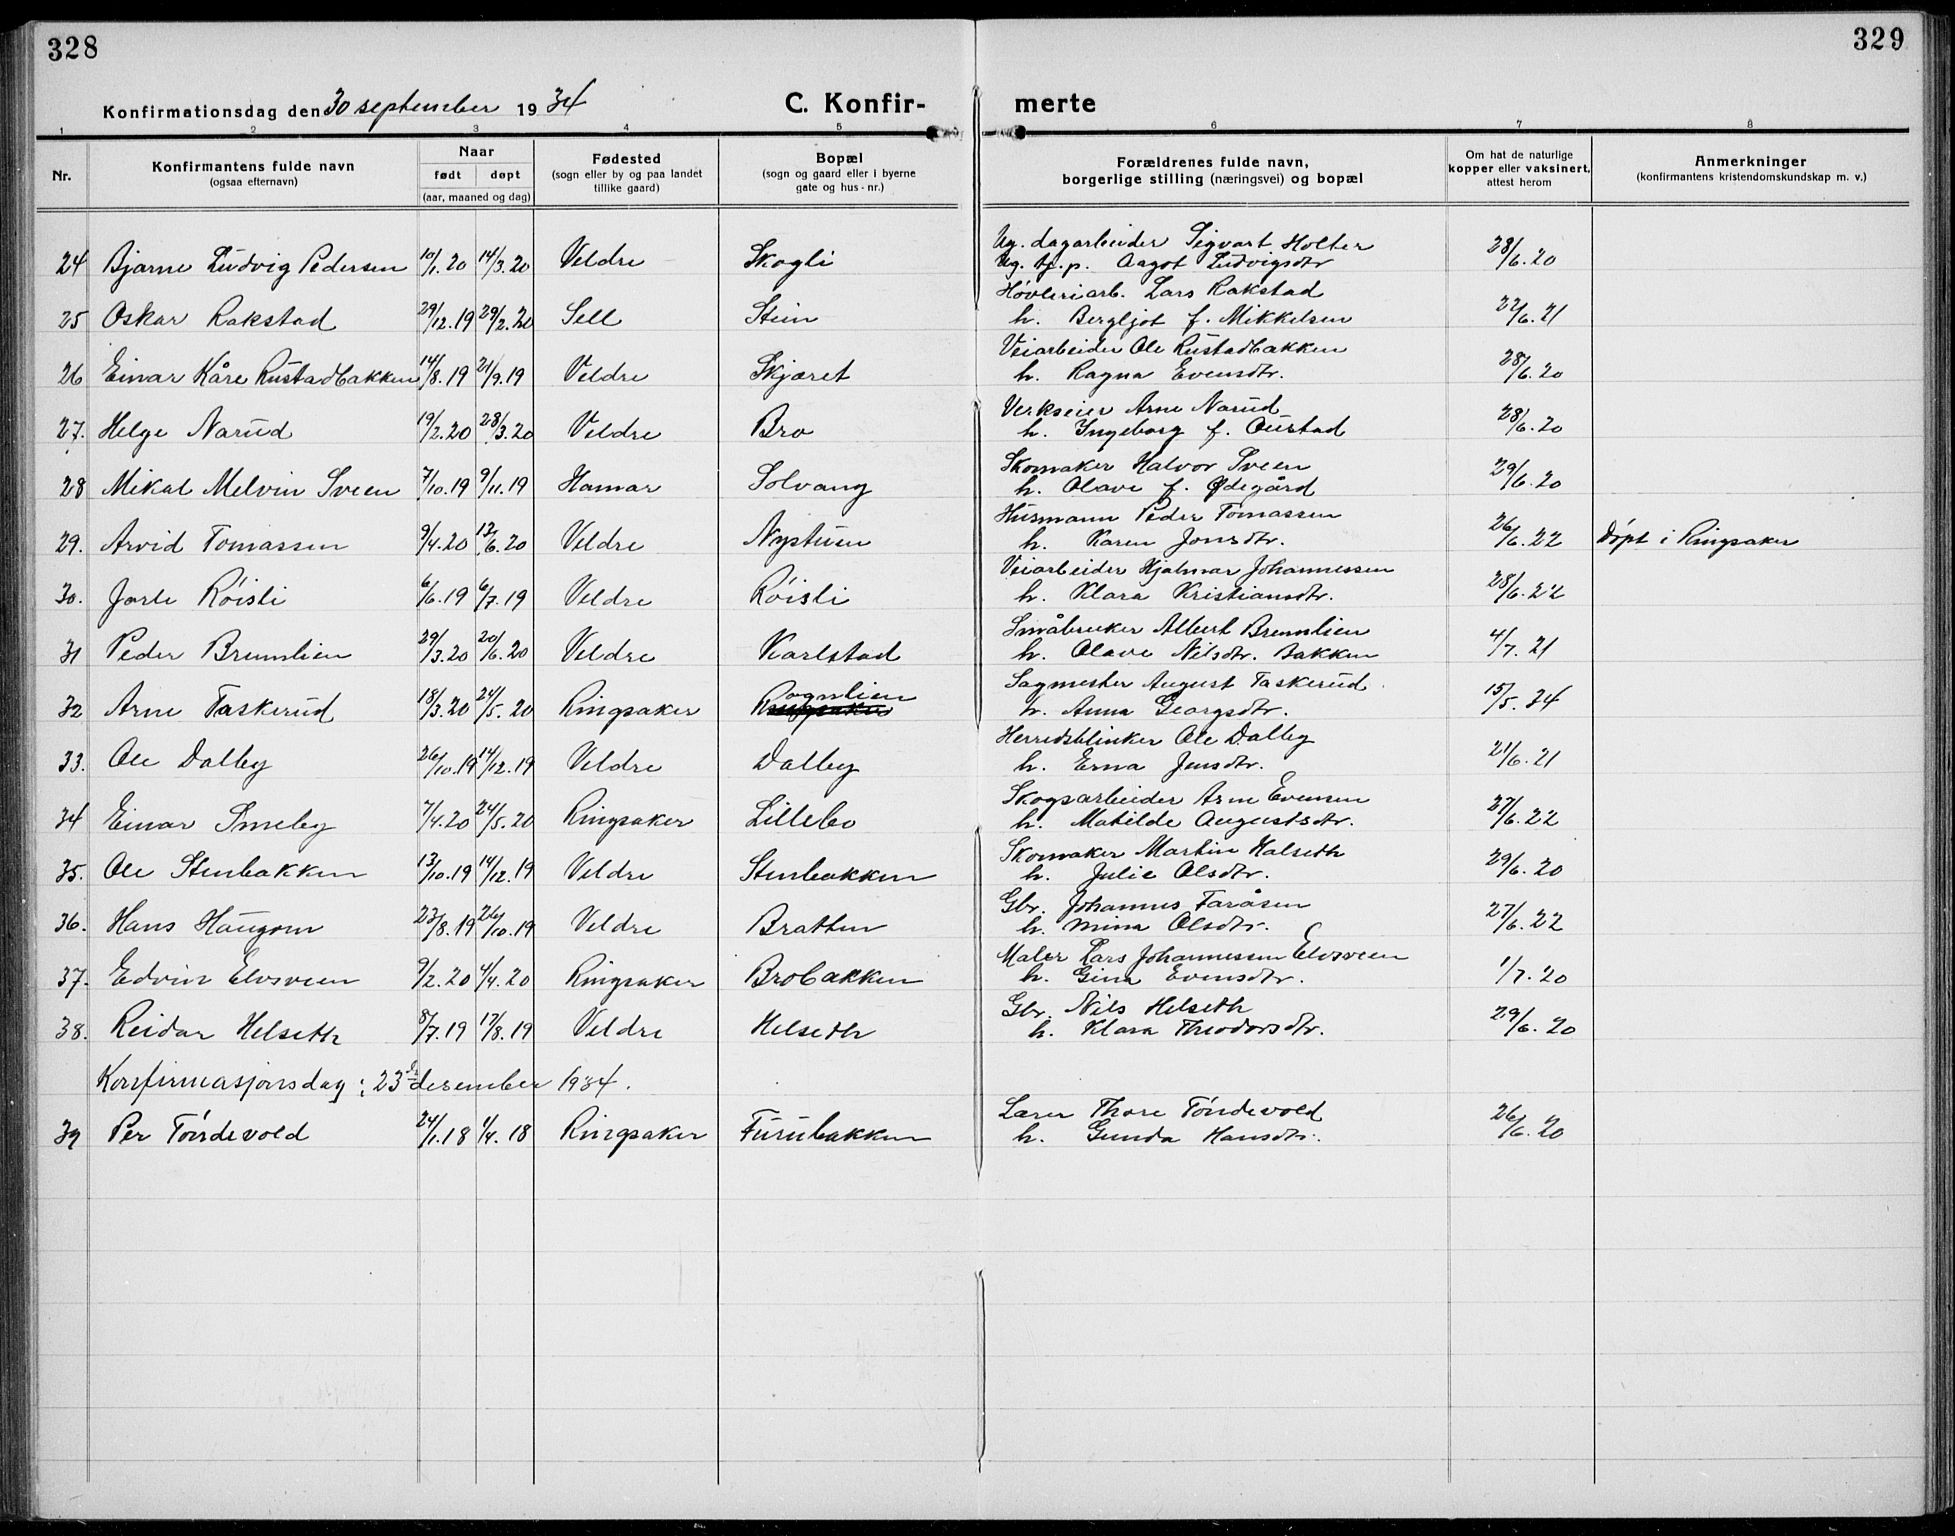 328
329
Konfirmationsdag den 30 september 1934
C. Konfirmerte
1 2 3 4 5 6 7 8
Nr. | Konfirmantens fulde navn (ogsaa efternavn) | Naar født døpt (aar, maaned og dag) | Fødested (sogn eller by og paa landet tillike gaard) | Bopæl (sogn og gaard eller i byerne gate og hus-nr.) | Forældrenes fulde navn, borgerlige stilling (næringsvei) og bopæl | Om hat de naturlige kopper eller vaksinert, attest herom | Anmerkninger (konfirmantens kristendomskundskap m. v.)
24 Bjarne Ludvig Pedersen 10/1.20 14/3.20 Veldre Skogli Ug. dagarbeider Sigvart Holter 28/6.20
Ug. tj.p. Aagot Ludvigsdtr
25 Oskar Rakstad 29/12.19 29/2.20 Sell Stein Høvleriarb. Lars Rakstad 22/6.21
h. Bergljot f. Mikkelsen
26 Einar Kåre Rustadbakken 14/8.19 21/9.19 Veldre Skjæret Veiarbeider Ole Rustadbakken 28/6.20
h. Ragna Evensdtr.
27. Helge Narud 19/2.20 28/3.20 Veldre Bro Verkseier Arne Narud 28/6.20
h. Ingeborg f. Austad
28 Mikal Melvin Sveen 7/10.19 9/11.19 Hamar Solvang Skomaker Halvor Sveen 29/6.20
h. Olave f. Ødegård
29. Arvid Tomassen 9/4.20 13/6.20 Veldre Nystuen Husmann Peder Tomassen 26/6.22 Døpt i Ringsaker
h. Karen Jonsdtr.
30. Jarle Røisli 6/6.19 6/7.19 Veldre Røisli Veiarbeider Hjalmar Johannessen 28/6.22
h. Klara Kristiansdtr.
31 Peder Bremlien 29/3.20 20/6.20 Veldre Karlstad Småbruker Albert Bremlien 4/7.21
h. Olave Nilsdtr. Bakken
32 Arne Taskerud 18/3.20 24/5.20 Ringsaker Rognlien Sagmester August Taskerud 15/5.34
h. Anna Georgsdtr.
33. Ole Dalby 26/10.19 14/12.19 Veldre Dalby Herredsblinker Ole Dalby 21/6.21
h. Erna Jensdtr.
34 Einar Smeby 7/4.20 24/5.20 Ringsaker Lillebo Skogsarbeider Arne Evensen 27/6.22
h. Matilde Augustsdtr.
35. Ole Stenbakken 13/10.19 14/12.19 Veldre Stenbakken Skomaker Martin Halseth 29/6.20
h. Julie Olsdtr.
36. Hans Haugom 23/8.19 26/10.19 Veldre Bratten Gbr. Johannes Faråsen 27/6.22
h. Mina Olsdtr.
37. Edvin Elvsveen 9/2.20 4/4.20 Ringsaker Brobakken Maler Lars Johannessen Elvsveen 1/7.20
h. Gina Evensdtr.
38. Reidar Helseth 8/7.19 17/8.19 Veldre Helseth Gbr. Nils Helseth 29/6.20
h. Klara Theodorsdtr.
Konfirmasjonsdag: 23de desember 1934.
39 Per Tøndevold 24/1.18 1/4.18 Ringsaker Furubakken Lærer Thore Tøndevold 26/6.20
h. Gunda Hansdtr.